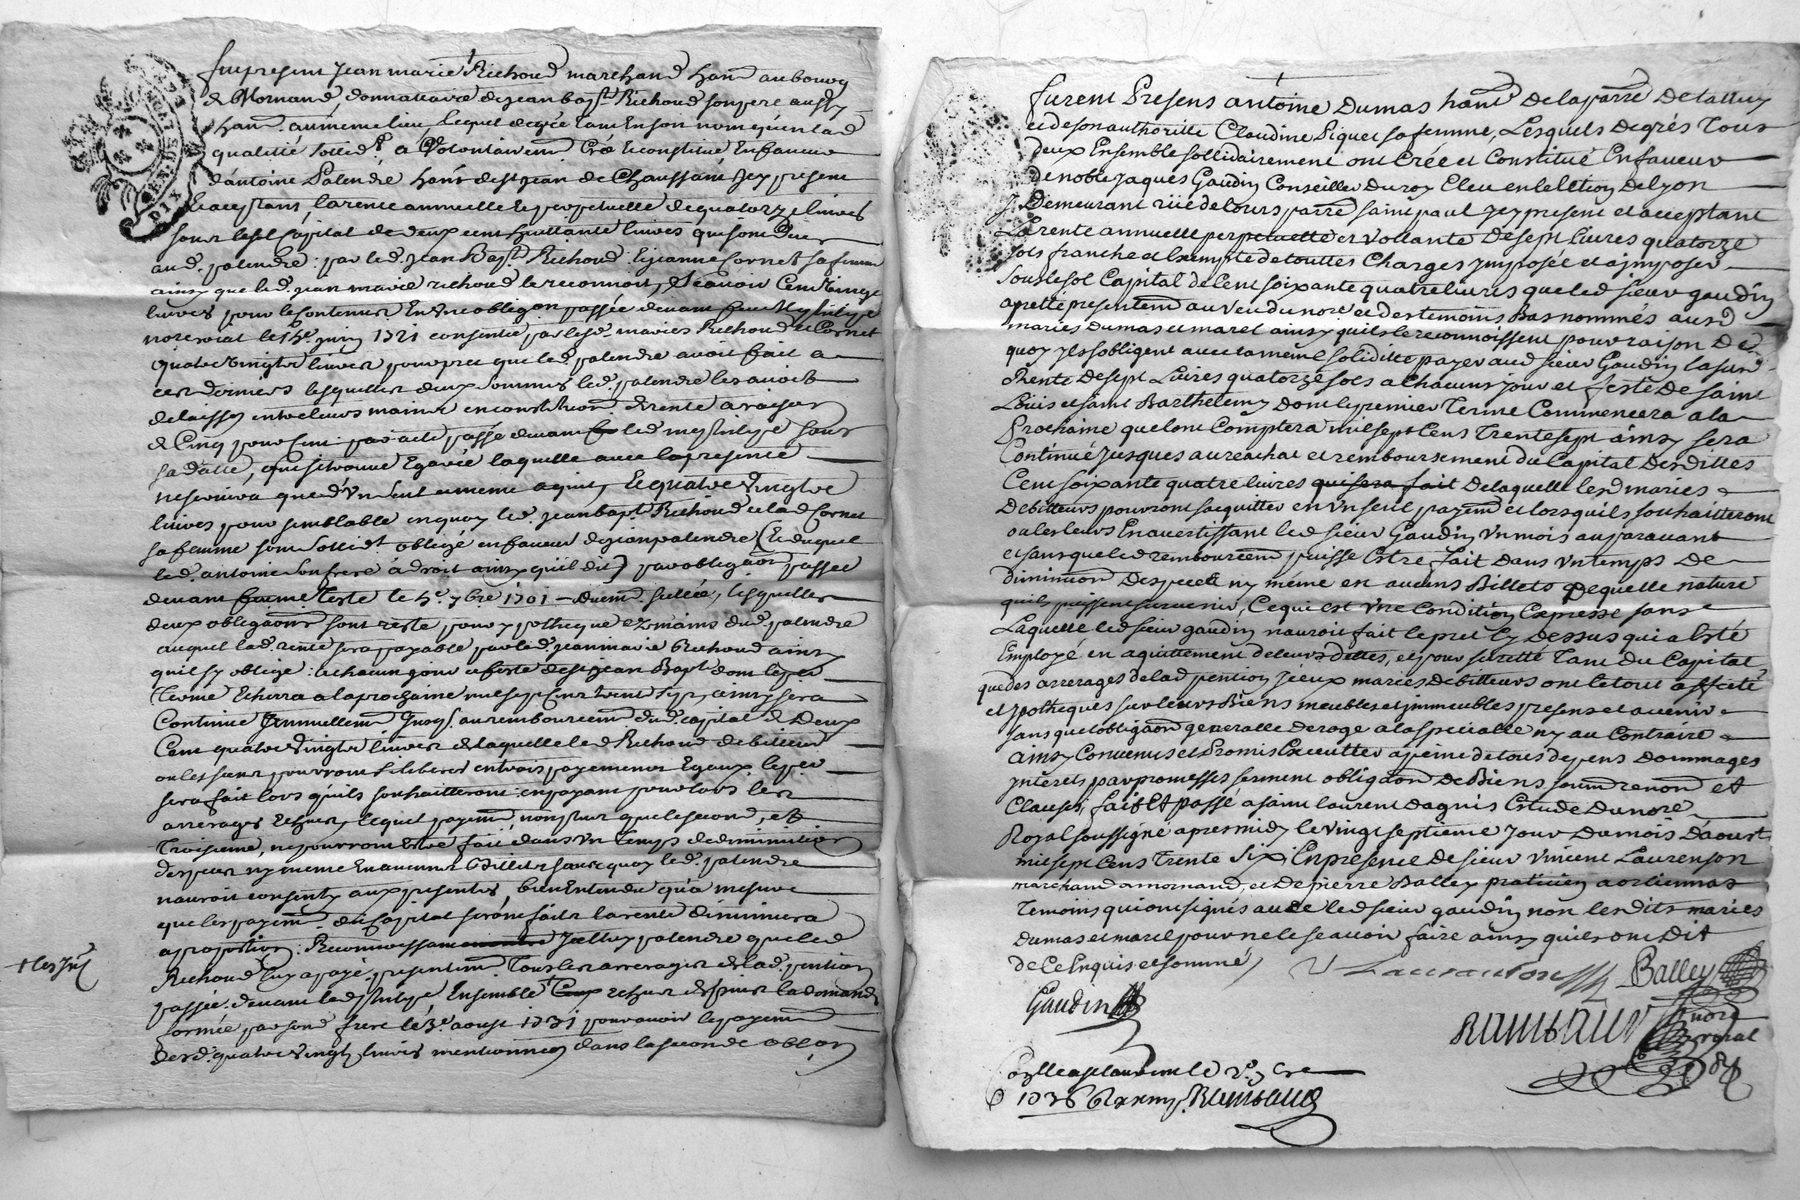 DIX
fut present Jean marie Richoud marchand han^t au bourg
de Mornand, donnattaire de jean bap^t Richoud son pere aussy
han^t au meme lieu, lequel de gré tant en son nom qu'en lad
qualitté sollid^t a volontairem^t créé et constitué en faveur
d'antoine Palendre han^t de s^t jean de Chaussant jcy present
et aceptant, la rente annuelle et perpetuelle de quatorze livres
sous le sol capital de deux cent quattante livres qui sont dues
aud. palendre par led. jean bap^t Richoud et jeanne Cornet sa femme
ainsy que led. jean marie richoud le reconnoit, Scavoir Cent vingt
livres pour le contenu en une obligaon passée devant
no^re royal le juin 1721 consentie par lesd. mariés Richoud et Cornet
quatre vingt livres pour pret que led. palendre avoit fait a
ces derniers lesquelles deux sommes led. palendre les avoit
delaissé entre leurs mains en constitution de rente a raison
de Cinq pour cent par acte passé devant led sous
sa datte, qui se trouve Egarée laquelle avec la presente
ne servira que d'un seul et meme aquit, Et quatre vingt
livres pour semblable en quoy led. jean bapt Richoud et lad Cornet
sa femme sont sollid^t obligé en faveur de palendre (et duquel
led. antoine son frere a droit ainsy qu'il dit) par obligaon passée
devant le 7bre 1701 lesquelles
deux obligaons sont resté pour ypotheque ez mains dud. palendre
auquel lad. rente sera payable par led. jean marie Richoud ainsy
qu'il s'y oblige a chacun jour et feste de s^t jean Bap^t dont le p^er
terme Echerra a la prochaine mil sept cent trente sept, ainsy sera
Continué annuellem^t jusq^s au remboursem^t dud. capital de Deux
Cent quatre vingt livres de laquelle led Richoud debitteur
ou les siens pourront se liberer en trois payements Egaux, le p^er
sera fait lors qu'ils souhaitteront en payant pour lors les
arrerages Echus, lequel payem^t non plus que le second, et
troisieme, ne pourront Estre fait dans un temps de diminution
d'especes ny meme en aucuns Billets sans quoy led. palendre
n'auroit consenty aux presentes, bien Entendu qu'a mesure
que les payem^ts du Capital seront faits la rente diminuera
a proportion. Reconnoissant led. palendre que led
Richoud luy a payé presentem^t tous les arrerages de lad. pention
passée devant led Ensemble ceux echus depuis la demande
formée par son frere le 3^e aoust 1731 pour avoir le payem^t
desd. quatre vingt livres mentionnées dans la seconde oblon
furent Presens antoine Dumas han^t de la parr^e de talluy
et de son authoritté Claudine Piquet sa femme, Lesquels de grés tous
deux Ensemble sollidairement ont Créé et Constitué En faveur
de noble jaques Gaudin Conseiller du roy Eleu en l'eletion de lyon
y Demeurant rüe de tours parr^e saint paul jcy present et aceptant
La rente annuelle perpetuelle et vollante de sept Livres quatorze
sols franche et Exempte de touttes Charges jmposée et a jmposer
sous le sol Capital de Cent soixante quatre livres que led sieur gaudin
a pretté presentem^t au veu du no^re et des temoins Bas nommés ausd
mariés dumas et marel ainsy qu'ils le reconnoissent pour raison De
quoy jls s'obligent avec la meme solliditté payer aud sieur Gaudin lasusd
Rente De sept Livres quatorze sols a Chacuns jour et feste de saint
Loüis et saint Barthelemy dont le premier terme Commencera a la
Prochaine que l'ont Comptera mil sept Cens Trente sept ainsy sera
Continué jusques au reachat et remboursement du Capital Desdittes
Cent soixante quatre livres qui sera fait De laquelle lesd mariés
Debitteurs pourront s'aquitter en un seul payem^t et lorsqu'ils souhaitteront
ou les leurs En avertissant led sieur Gaudin un mois auparavant
et sans que led remboursem^t puisse Estre fait dans un temps De
diminuon Despeces ny meme en aucuns Billets De quelle nature
qu'ils puissent survenir, Ce qui est une Condition Expresse sans
Laquelle led sieur gaudin n'auroit fait le pret Cy Dessus qui a Esté
Employé en aquittement de leurs dettes, et pour suretté Tant du Capital
que des arrerages de lad pention jceux mariés Debitteurs ont le tout affecté
et ypothequés sur leurs Biens meubles et jmmeubles presens et avenir
sans que l'obligaon generalle deroge a la specialle ny au Contraire
ainsy Convenus et Promis Executter a peine de tous depens dommages
jnterets par promesses serment obligaon De Biens soum^n renon^n et
Clauses, fait et passé a saint laurent dagnis Etude du no^re
Royal soussigné apres midy le vingt septieme jour Du mois d'aoust
mil sept Cens Trente six, En presence de sieur vincent Laurenson
marchand a mornand, et De pierre Balley praticien a orlienas
temoins qui ont signés avec led sieur gaudin non lesdits mariés
dumas et marel pour ne le scavoir faire ainsy qu'ils ont Dit
de Ce Enquis et sommé,
Balley
Gaudin
Rambaud no^re royal
1736 Rambaud